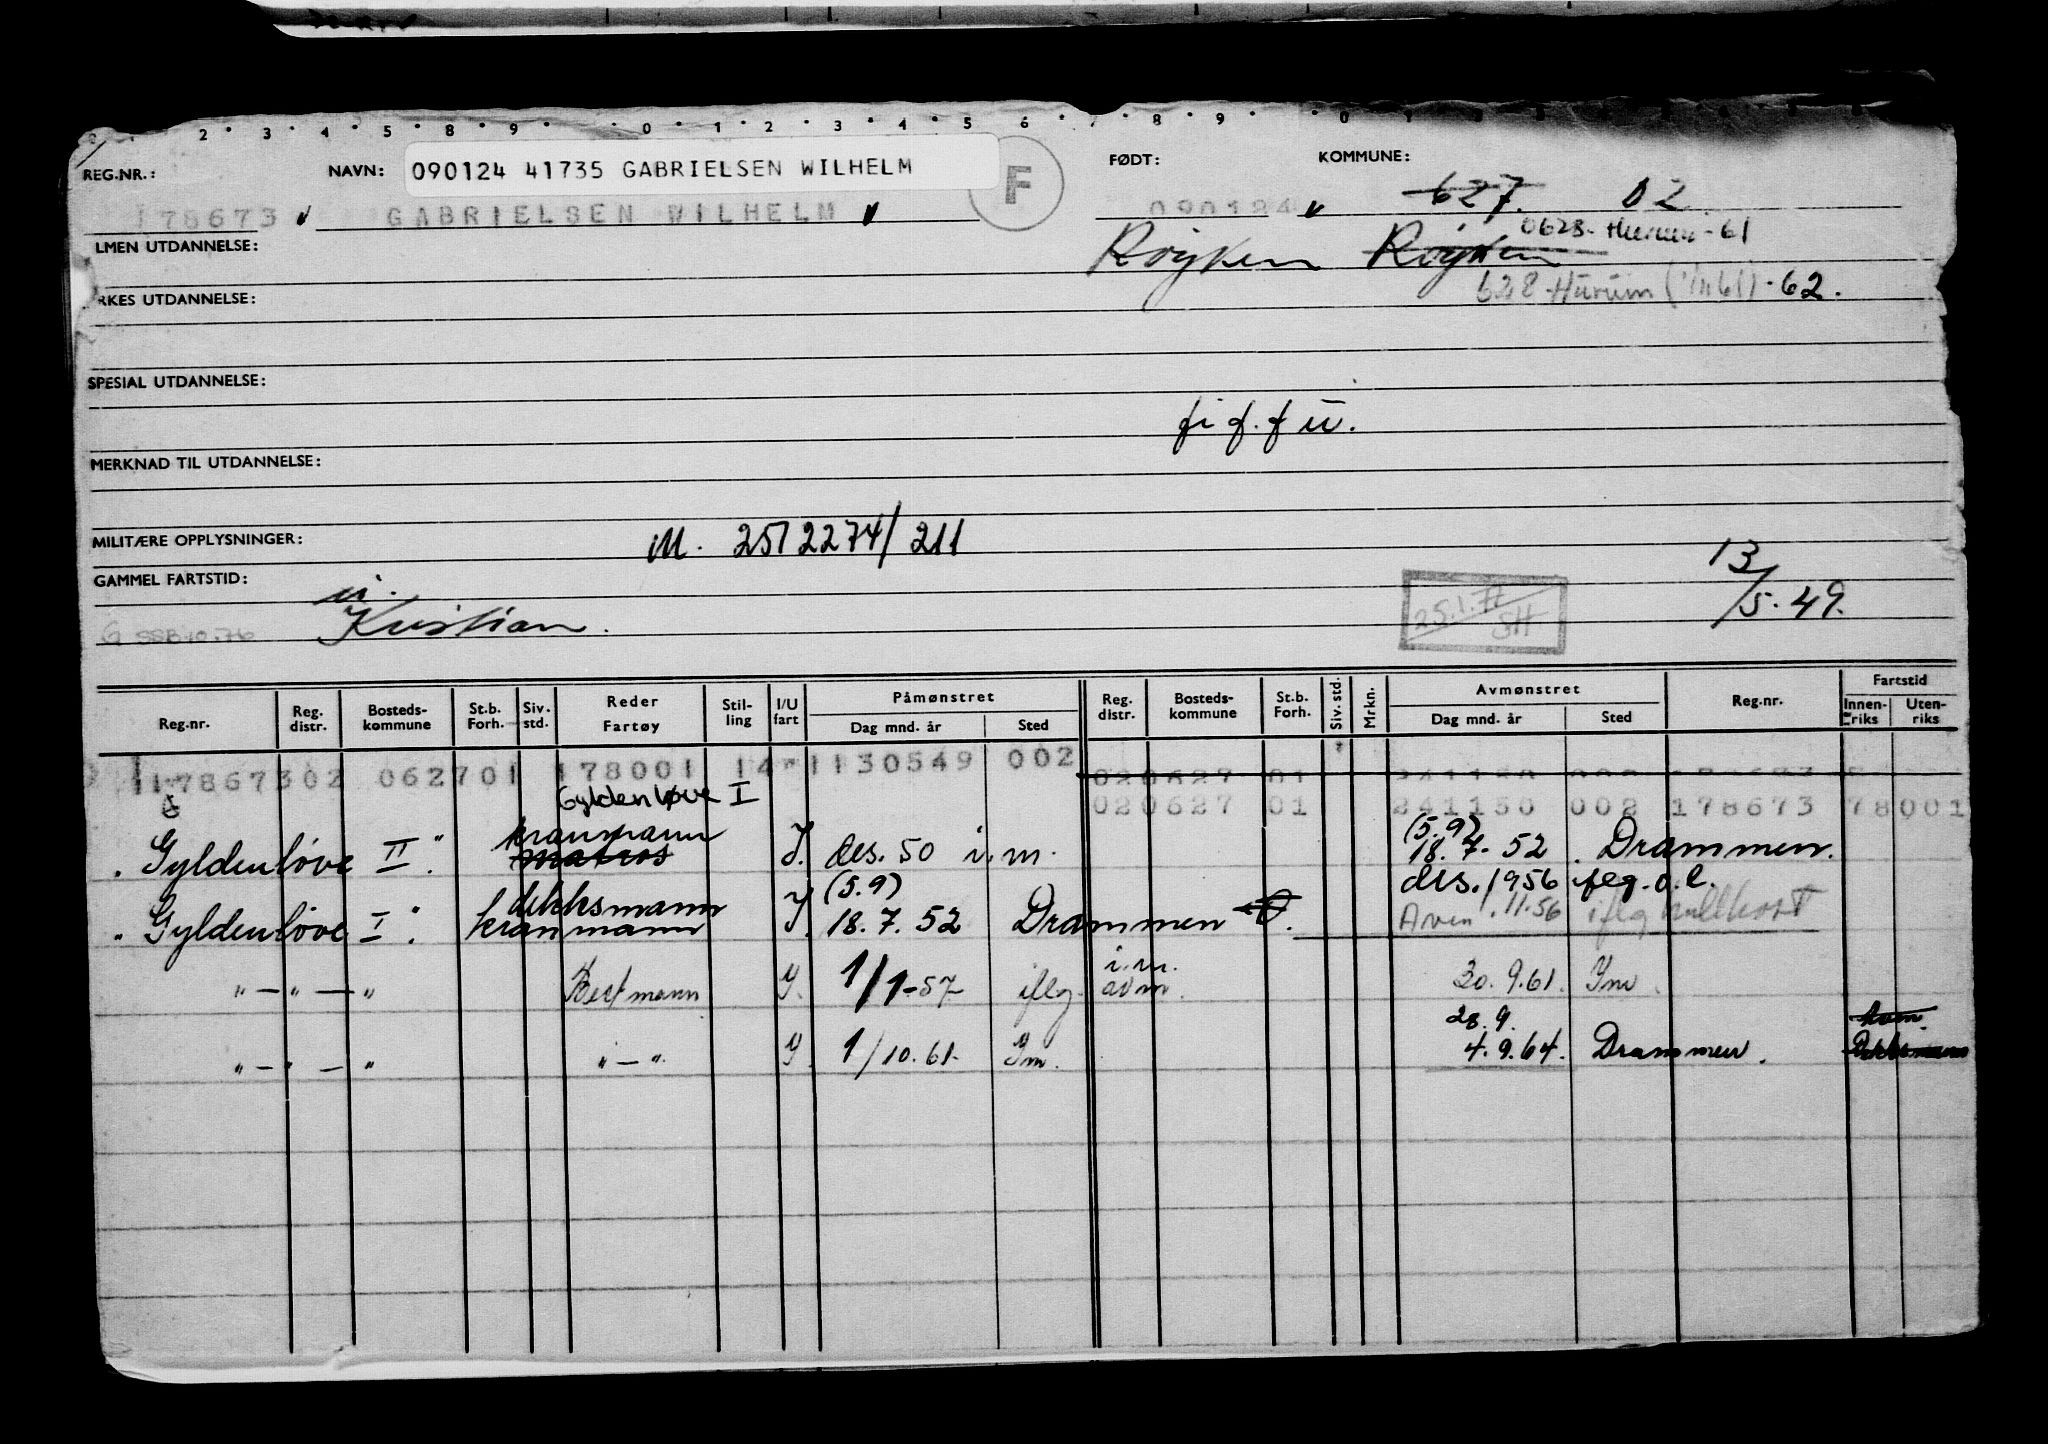 2 3 4 5 8 9 0 1 2 3 4 5 6 7 8 9 0
REG.NR.: NAVN: 090124 41735 GABRIELSEN WILHELM F FØDT: KOMMUNE:
627. 02
178673 GABRIELSEN WILHELM 090124
0628 Hurum - 61
LMEN UTDANNELSE: Røyken Røyken
RKES UTDANNELSE: 628 Hurum (1/1161) - 62.
SPESIAL UTDANNELSE:
MERKNAD TIL UTDANNELSE:
MILITÆRE OPPLYSNINGER: M. 2512274/211
GAMMEL FARTSTID: 13/5.49.
Kristian. 25.1.77 SH
Reg.nr. Reg. distr. Bosteds-kommune St.b. Forh. Siv. std. Reder Fartøy Stil-ling I/U fart Påmønstret Dag mnd. år Sted Reg. distr. Bosteds-kommune St.b. Forh. Siv. std. Mrkn. Avmønstret Dag mnd. år Sted Reg.nr. Fartstid Innen-riks Uten-riks
17867302 062701 178001 14 1130549 002 020627 01 241150 002 178673
Gyldenløve I 020627 01 241150 002 178673 78001
kranmann (5.9)
Gyldenløve II. matros I. des. 50 i.m. 18.7.52 Drammen.
dekksmann (5.9) des. 1956 iflg. o.l.
Gyldenløve I. kranmann I. 18.7.52 Drammen .11.56 iflg
i.m.
" — " — " Bestmann I. 1/1-57 iflg. avm. 30.9.61. Im.
28.9.
" — " — " " — " I 1/10.61. Im. 4.9.64. Drammen. Dekksmann